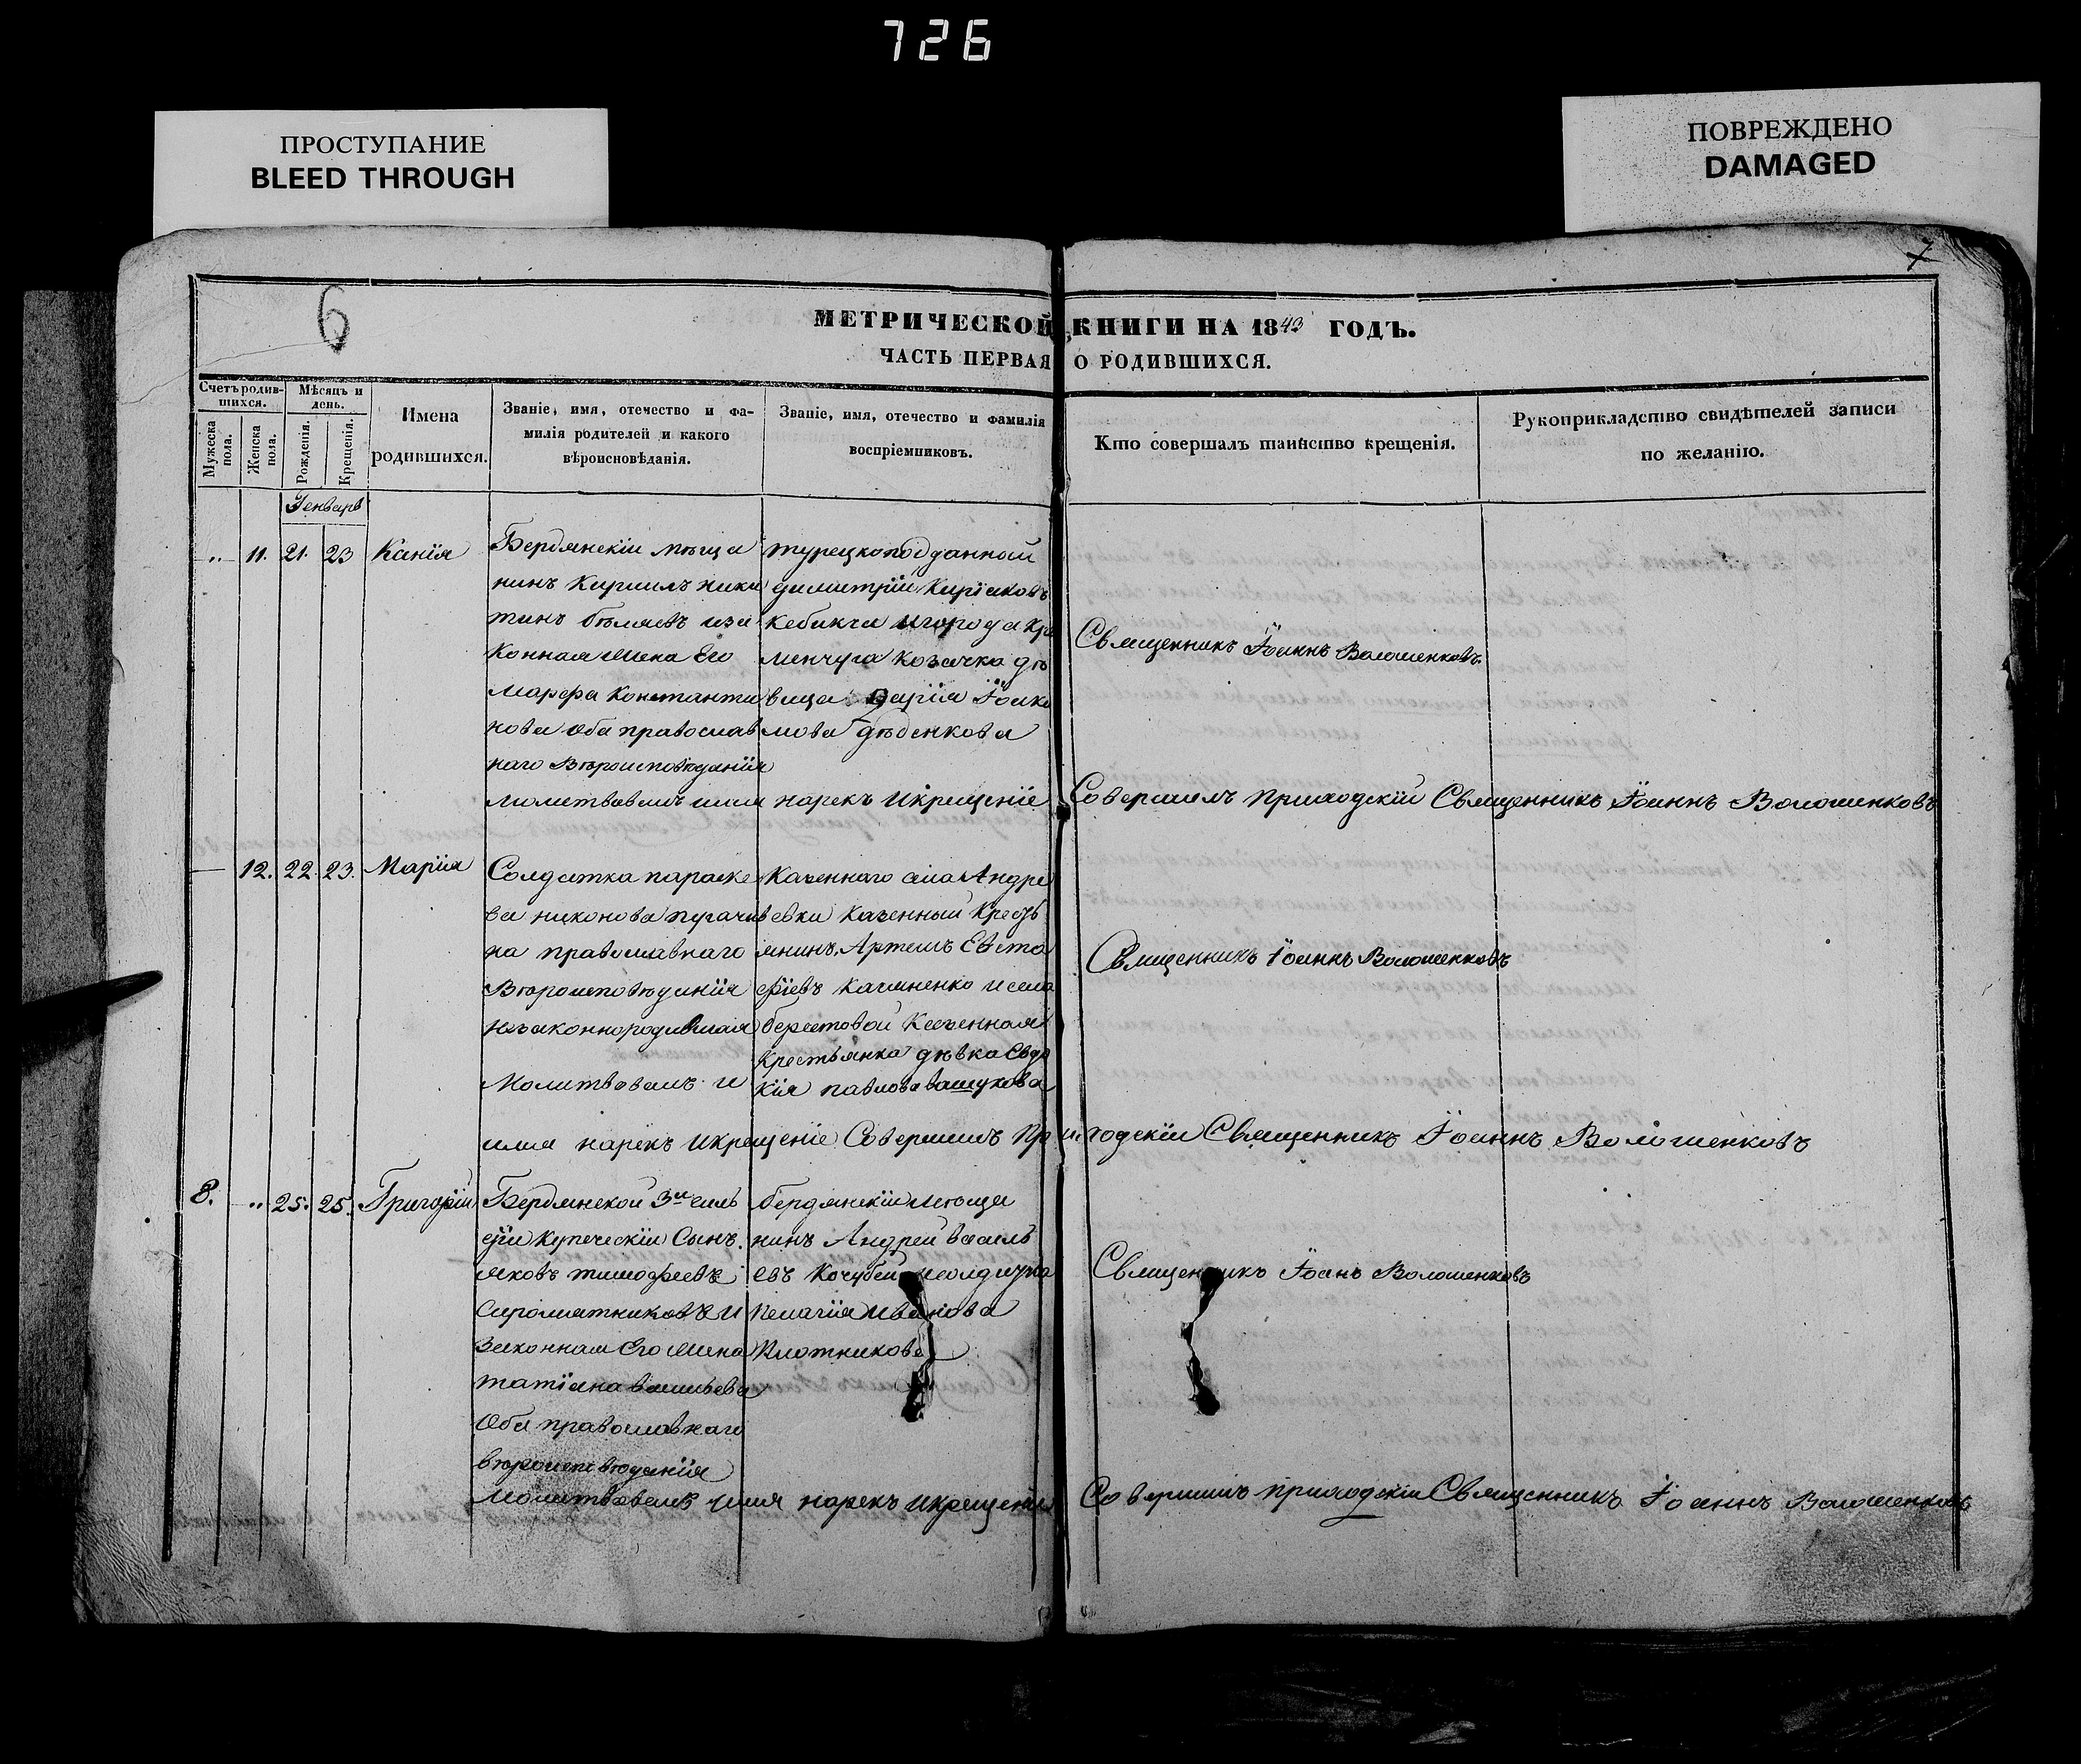 726
ПРОСТУПАНИЕ
BLEED THROUGH
ПОВРЕЖДЕНО
DAMAGED
6
7
МЕТРИЧЕСКОЙ КНИГИ НА 1843 ГОДЪ.
ЧАСТЬ ПЕРВАЯ О РОДИВШИХСЯ.
Счетъ родив-
шихся.
Мѣсяцъ и
день.
Мужеска
пола.
Женска
пола.
Рожденія.
Крещенія.
Имена
родившихся.
Званіе, имя, отечество и фа-
милія родителей и какого
вѣроисновѣданія.
Званіе, имя, отечество и фамилія
воспріемниковъ.
Кто совершалъ таинство крещенія.
Рукоприкладство свидѣтелей записи
по желанію.
Генварь
11. 21. 23 Ксенія
Бердянскій мѣща
нинъ Кирилъ ники
тинъ бѣляевъ иза
конная жена Его
Марфа Константи
нова оба православ
наго Вѣроисповѣданія
турецкоподданный
димитрій Киріяковъ
Кебикчи игорода Кре
менчуга Козачка дѣ
вица Дарія Іоаки
мова дѣденкова
Священникъ Іоаннъ Волошенковъ
Молитвовалъ имя нарекъ икрещеніе Совершилъ приходскій Священникъ Іоаннъ Волошенковъ
12. 22. 23. Марія
Солдатка параске
ва никонова пугачев
на православнаго
Вѣроисповѣданія
незаконнородившая
Казеннаго села Андре
евки казенный Кресть
янинъ Артемъ Евста
фіевъ Калиненко и села
берестовой Казенная
Крестьянка дѣвка Евдо
кія павлова
Священникъ Іоаннъ Волошенковъ
Молитвовалъ и
имя нарекъ икрещеніе Совершилъ Приходскій Священникъ Іоаннъ Волошенковъ
8. 25. 25. Григорій
Бердянской 3й гиль
діи купеческій Сынъ
яковъ тимофеевъ
Сыромятниковъ и
Законная Его жена
татіана васильева
Оба православнаго
вѣроисповѣданія
бердянскій мѣща
нинъ Андрей василь
евъ Кочубей
пелагія иванова
Плотникова
Священникъ Іоанъ Волошенковъ
Молитвовалъ имя нарекъ икрещеніе Совершилъ приходскій Священникъ Іоаннъ Волошенковъ